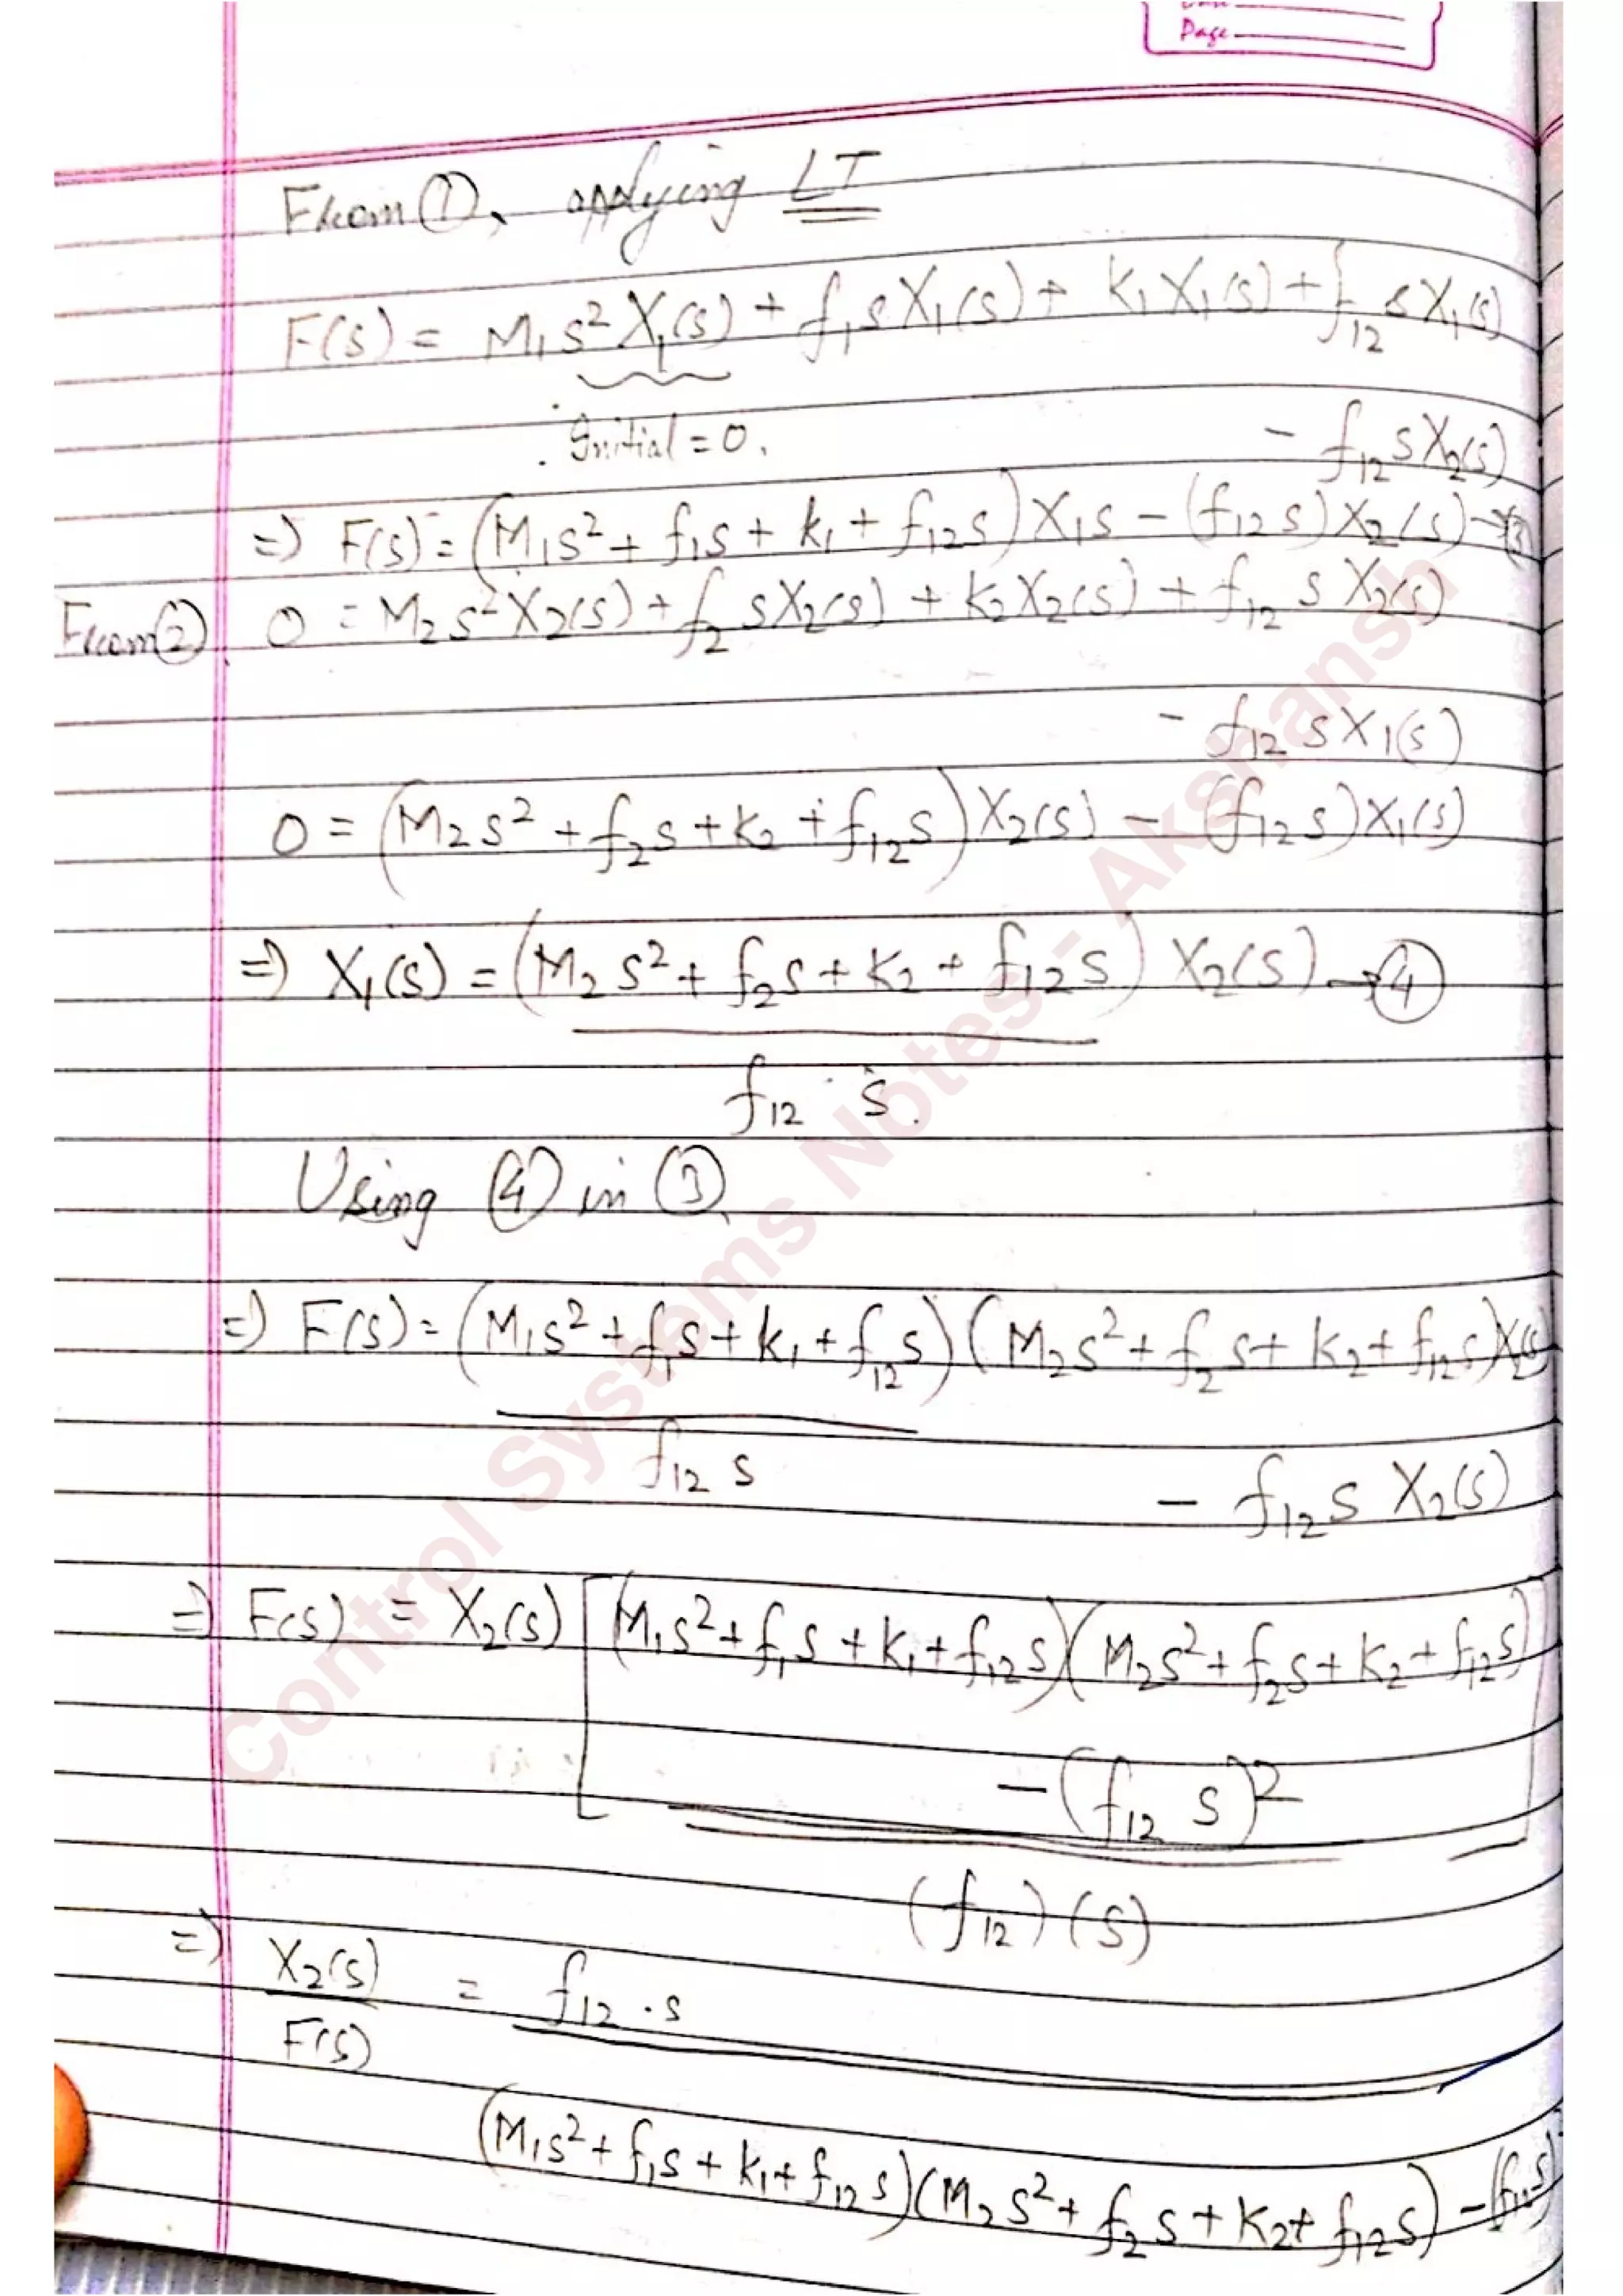 Page
From ①, applying LT
F(s) = M₁s²X₁(s) + f₁sX₁(s) + K₁X₁(s) + f₁₂sX₁(s)
Initial = 0.
- f₁₂sX₂(s)
=) F(s) = (M₁s² + f₁s + k₁ + f₁₂s)X₁s - (f₁₂s)X₂(s) →③
From ② 0 = M₂s²X₂(s) + f₂sX₂(s) + K₂X₂(s) + f₁₂ s X₂(s)
- f₁₂ s X₁(s)
0 = (M₂s² + f₂s + K₂ + f₁₂s)X₂(s) - (f₁₂s)X₁(s)
=) X₁(s) = (M₂s² + f₂s + K₂ + f₁₂s) X₂(s) →④
f₁₂ s.
Using ④ in ③
=) F(s) = (M₁s² + f₁s + k₁ + f₁₂s)(M₂s² + f₂s + K₂ + f₁₂s)X₂(s)
f₁₂ s
- f₁₂s X₂(s)
=) F(s) = X₂(s) [(M₁s² + f₁s + K₁ + f₁₂s)(M₂s² + f₂s + K₂ + f₁₂s)
-(f₁₂ s)²]
(f₁₂)(s)
=) X₂(s) = f₁₂ . s
F(s)
(M₁s² + f₁s + k₁ + f₁₂s)(M₂s² + f₂s + K₂ + f₁₂s) - (f₁₂s)²
Control Systems Notes - Akshansh